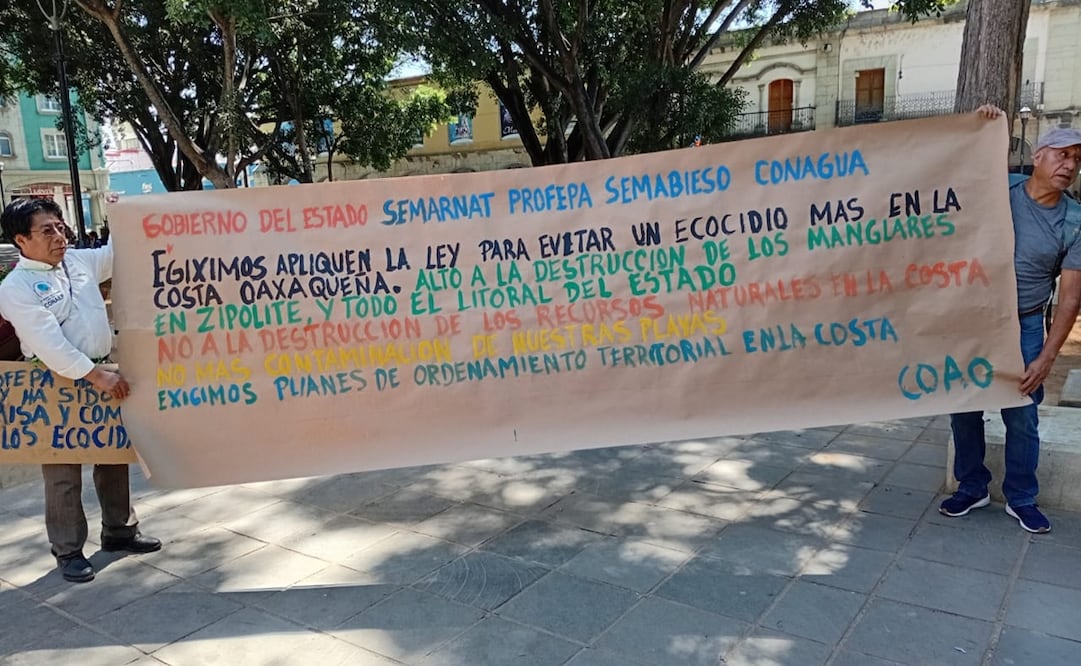 GOBIERNO DEL ESTADO SEMARNAT PROFEPA SEMABIESO CONAGUA
EGIXIMOS APLIQUEN LA LEY PARA EVITAR UN ECOCIDIO MAS EN LA
COSTA OAXAQUEÑA. ALTO A LA DESTRUCCION DE LOS MANGLARES
EN ZIPOLITE, Y TODO EL LITORAL DEL ESTADO
NO A LA DESTRUCCION DE LOS RECURSOS NATURALES EN LA COSTA
NO MAS CONTAMINACION DE NUESTRAS PLAYAS
EXIGIMOS PLIANES DE ORDENAMIENTO TERRITORIAL EN LA COSTA
COAO
CONALEP
OFEPA
Y HA SIDO
MISA Y COM
LOS ECOCID